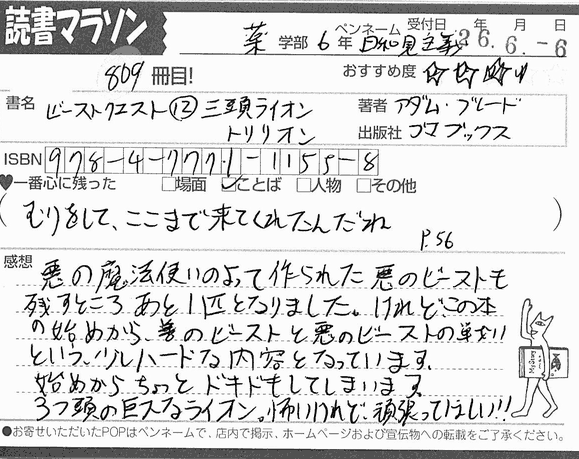 読書マラソン
薬 学部 6 年 ペンネーム 日和見主義 受付日 年 月 日
26.6.-6
809 冊目!
おすすめ度
書名 ビーストクエスト⑫ 三頭ライオン
トリリオン
著者 アダム・ブレード
出版社 ゴマブックス
ISBN 978-4-7771-1155-8
♥一番心に残った □場面 ☑ことば □人物 □その他
(むりをして、ここまで来てくれたんだね
P.56 )
感想 悪の魔法使いのよって作られた悪のビーストも
残すところあと1匹となりました。けれど、この本
の始めから、善のビーストと悪のビーストの
という、少しハードな内容となっています。
始めからちょっとドキドキしてしまいます。
3つ頭の巨大なライオン。怖いけれど、頑張ってほしい!!
●お寄せいただいたPOPはペンネームで、店内で掲示、ホームページおよび宣伝物への転載をご了承ください。